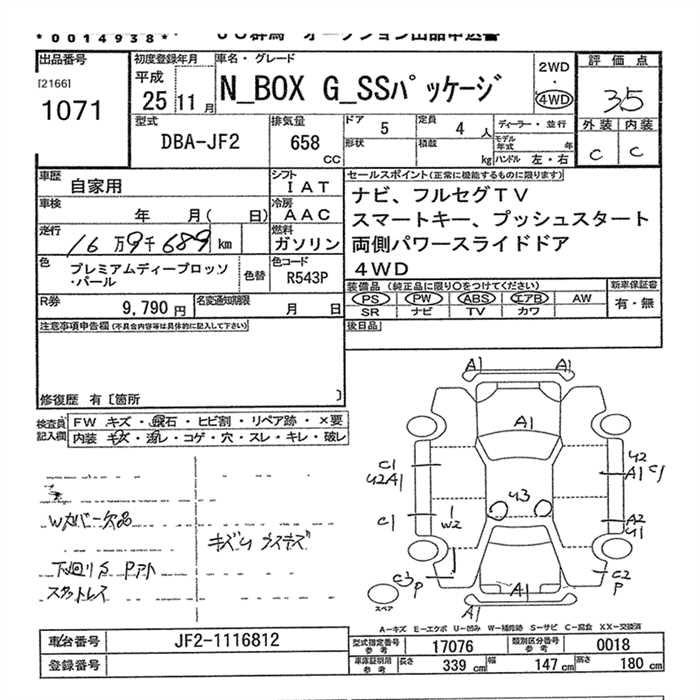 *0014938*
出品番号
[2166]
1071
初度登録年月
平成
25 11月
車名・グレード
N_BOX G_SSパッケージ
2WD
・
4WD
評価点
3.5
外装 内装
C C
型式
DBA-JF2
排気量
658
CC
ドア 5
定員 4人
形状
積載 kg
ディーラー・並行
モデル年式 年
ハンドル 左・右
車歴
自家用
シフト
IAT
車検
年 月( 日)
冷房
AAC
走行
16万9千689km
燃料
ガソリン
色
プレミアムディープロッソ
・パール
色替
色コード
R543P
R券
9,790円
名変通知期限
月 日
セールスポイント(正常に機能するものに限ります)
ナビ、フルセグTV
スマートキー、プッシュスタート
両側パワースライドドア
4WD
装備品(純正品に限り○をつけてください)
PS PW ABS エアB AW
SR ナビ TV カワ
新車保証書
有・無
後日品
注意事項申告欄(不具合内容等は具体的に記入して下さい)
修復歴 有[箇所 ]
検査員
記入欄
FW キズ・飛石・ヒビ割・リペア跡・×要
内装 キズ・汚レ・コゲ・穴・スレ・キレ・破レ
Wカバー欠品
下回りS Pアト
スタットレス
A1 A1
A1
C1
U2A1
U2
A1 C1
U3
C1
W2
A2
U1
C3P
C2
P
A1
A1
スペア
A-キズ E-エクボ U-凹み W-補修跡 S-サビ C-腐食 XX-交換済
車台番号
JF2-1116812
登録番号
型式指定番号
参考
17076
類別区分番号
参考
0018
車庫証明用
参考
長さ 339cm
幅 147cm
高さ 180cm